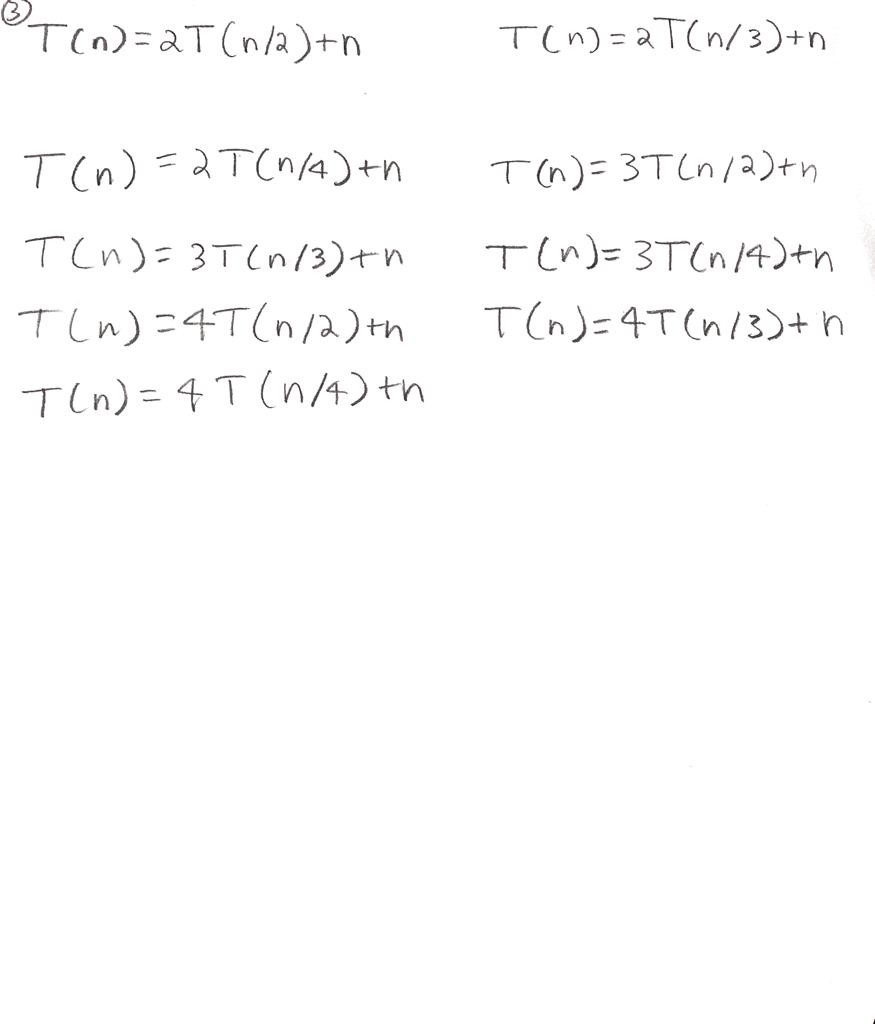 ③
T(n)=2T(n/2)+n T(n)=2T(n/3)+n
T(n)=2T(n/4)+n T(n)=3T(n/2)+n
T(n)=3T(n/3)+n T(n)=3T(n/4)+n
T(n)=4T(n/2)+n T(n)=4T(n/3)+n
T(n)=4T(n/4)+n